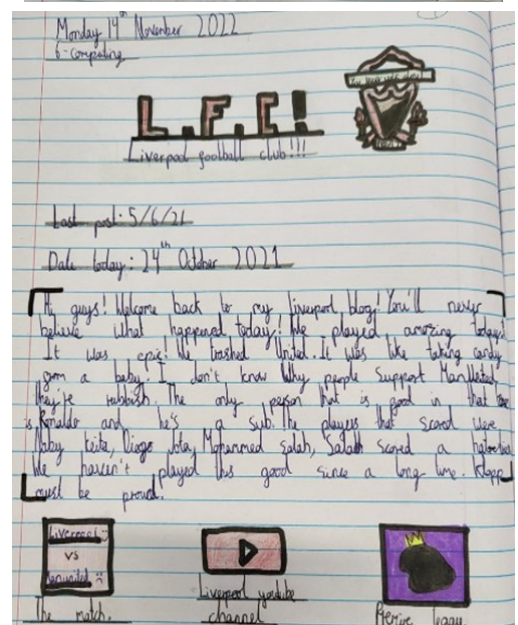 Monday 14th November 2022
6-Computing
L.F.C!
Liverpool football club!!!
Last post: 5/6/21
Date today: 24th October 2021
Hi guys! Welcome back to my liverpool blog! You'll never
believe what happened today! We played amazing today!
It was epic! We trashed United. It was like taking candy
from a baby. I don't know Why people Support ManUnited
they're rubbish. The only person that is good in that
is Ronaldo and he's a sub. The players that scored were
Naby keita, Diogo Jota, Mohammed Salah, Salah scored a
We haven't played this good since a long time. Klopp
must be proud.
Liverpool
VS
The match.
Liverpool youtube
channel